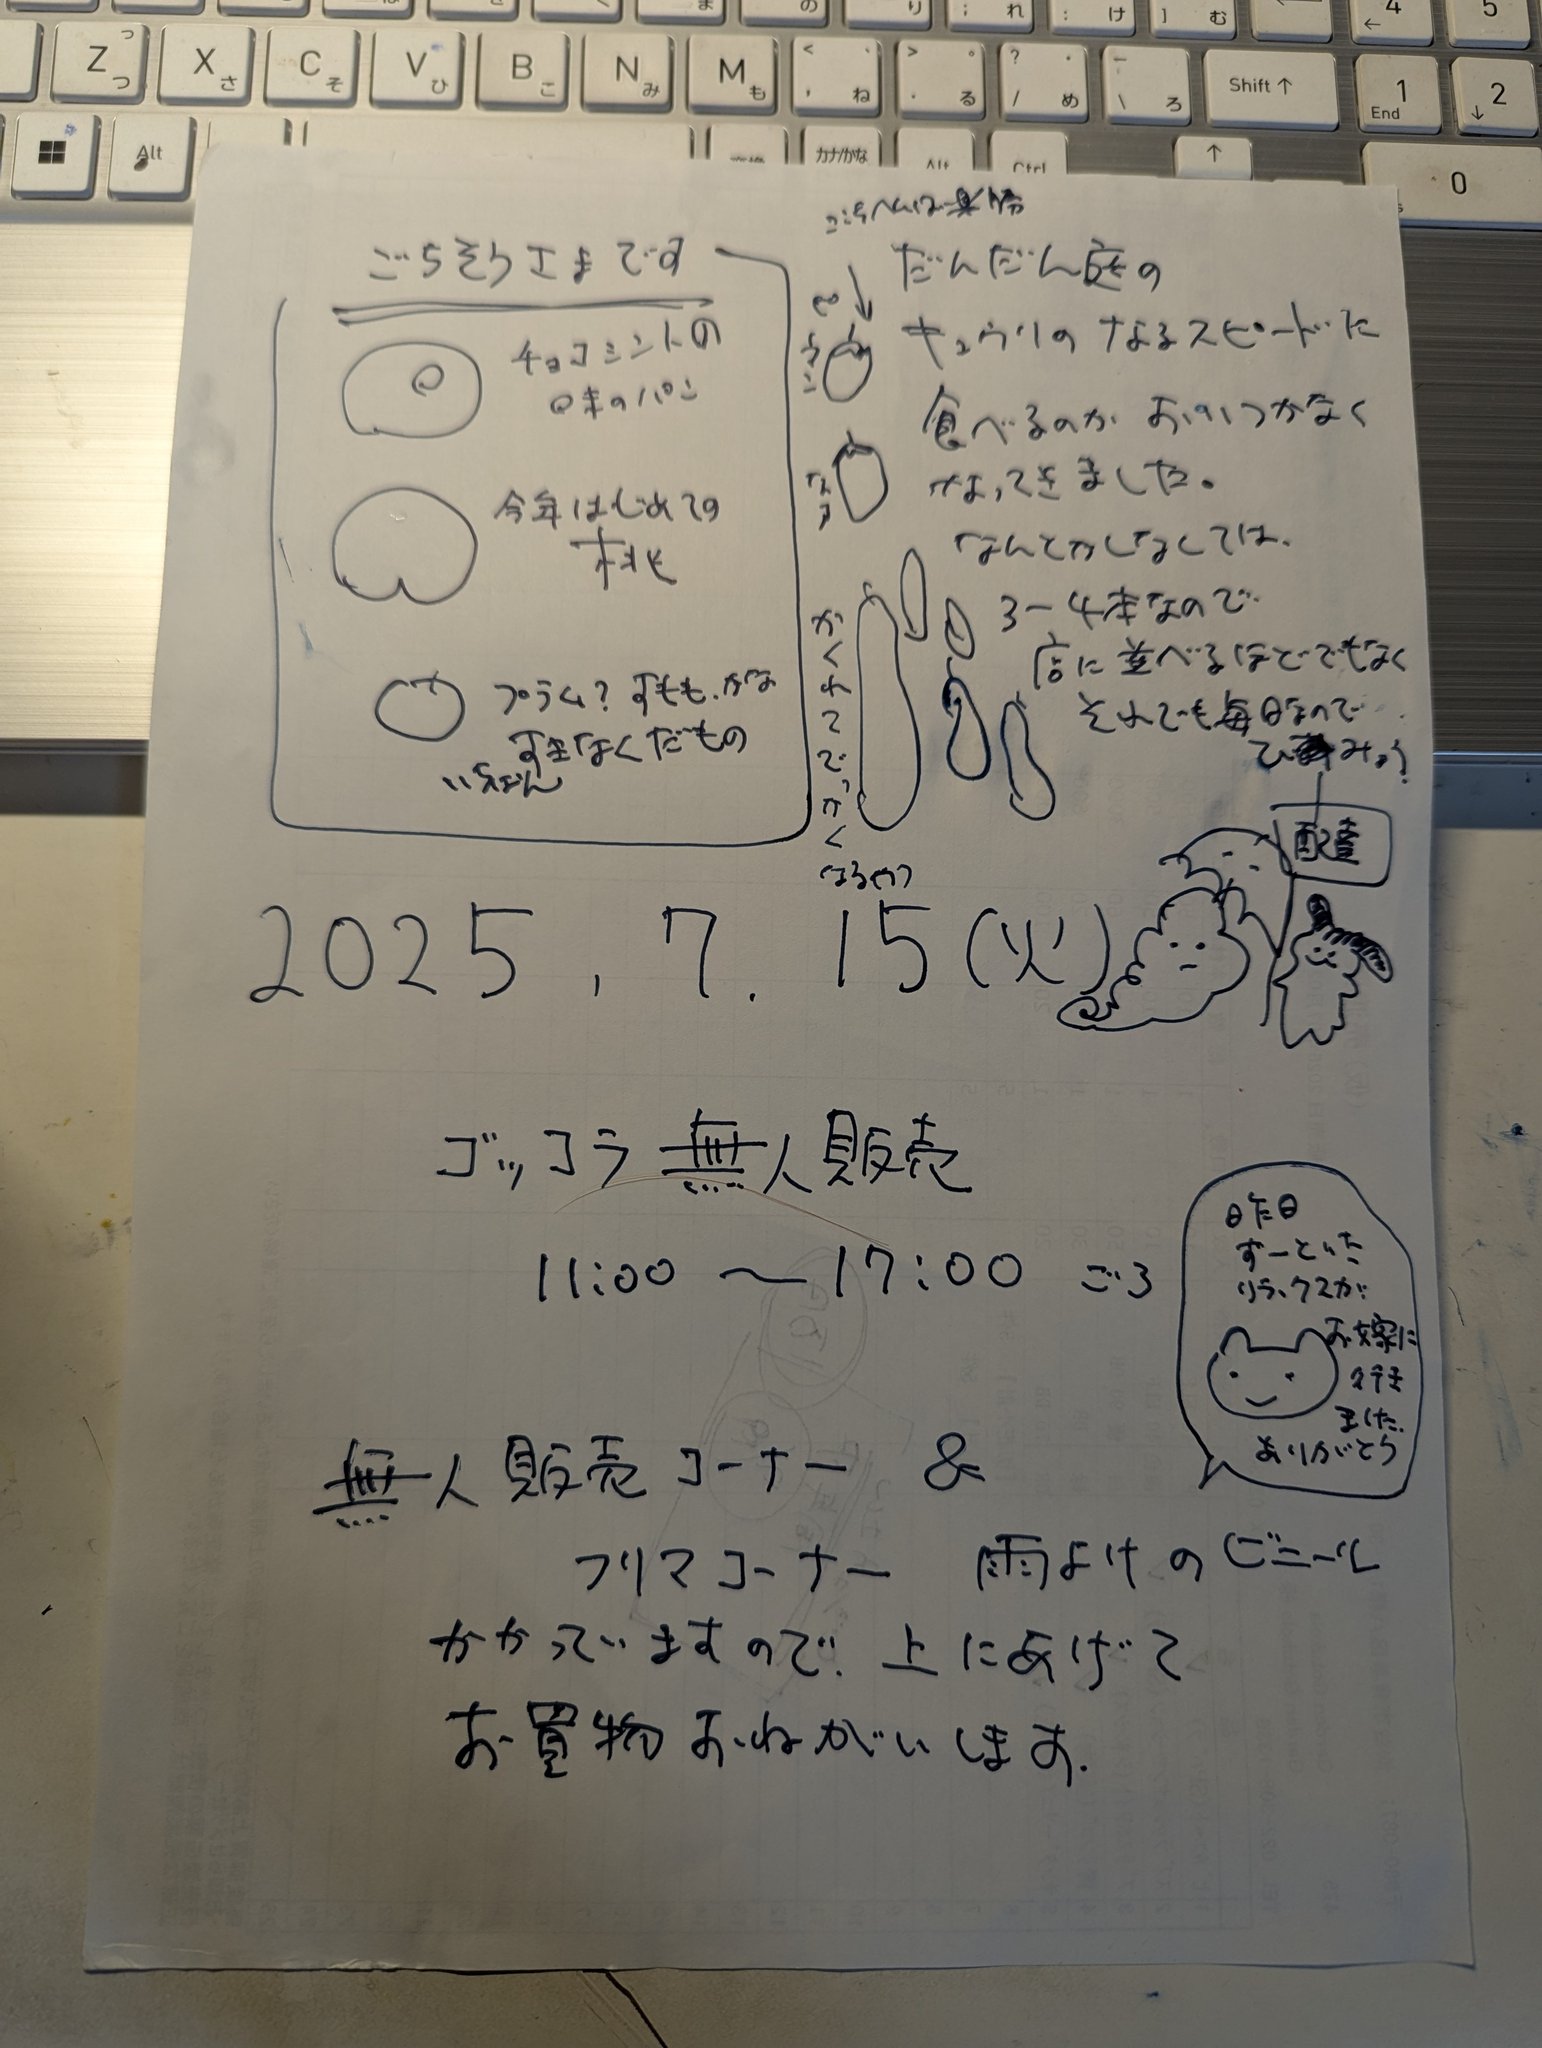 ごちそうさまです
チョコミントの
味のパン
今年はじめての
桃
プラム？すもも、かな
すきなくだもの
いちばん
だんだん庭の
キュウリのなるスピードに
食べるのがおいつかなく
なってきました。
なんとかしなくては、
3－4本なので
店に並べるほどでもなく
それでも毎日なので
ピーマン
ナス
かくれてでっかく
なるやつ
配達
2025.7.15(火)
ゴッコラ 無人販売
11:00～17:00 ごろ
昨日
ずーといた
リラックスが
お嫁に
行き
ました。
ありがとう
無人販売コーナー &
フリマコーナー 雨よけのビニール
かかっていますので、上にあげて
お買物おねがいします.
Z
つ
X
さ
C
そ
V
ひ
B
こ
N
み
M
も
ね
る
め
ろ
Shift ↑
1
End
2
Alt
カナ/かな
Alt
Ctrl
0
4
5